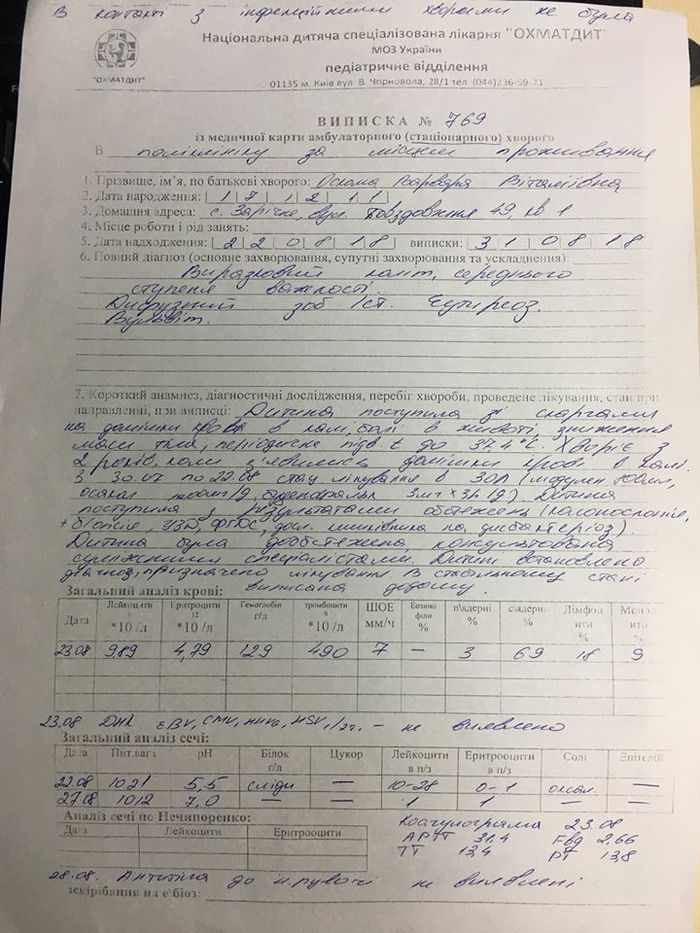 В контакті з інфекційними хворими не була
Національна дитяча спеціалізована лікарня "ОХМАТДИТ"
МОЗ України
педіатричне відділення
"ОХМАТДИТ"
01135 м. Київ вул. В. Чорновола, 28/1 тел. (044)236-59-71
ВИПИСКА № 769
із медичної карти амбулаторного (стаціонарного) хворого
В поліклініку за місцем проживання
1. Прізвище, ім'я, по батькові хворого: Варвара Віталіївна
2. Дата народження: 18 12 11
3. Домашня адреса: с. Зарічне, вул. 49, кв 1
4. Місце роботи і рід занять:
5. Дата надходження: 22 08 18 виписки: 31 08 18
6. Повний діагноз (основне захворювання, супутні захворювання та ускладнення):
Виразковий коліт, середнього
ступеня важкості.
Дифузний зоб І ст. Еутиреоз.
Вульвіт.
7. Короткий анамнез, діагностичні дослідження, перебіг хвороби, проведене лікування, стан при
направленні, при виписці: Дитина поступила зі скаргами
на домішки крові в калі, болі в животі зниження
маси тіла, періодичне підв. t до 37,4°C. Хворіє з
2 років, коли з'явились домішки крові в калі.
З 30.07 по 22.08 стац лікування в
Дитина
поступила з результатами обстежень (колоноскопія,
+ біопсія, ФГДС, досл. на дисбактеріоз).
Дитина була дообстежена консультована
суміжними спеціалістами. Дитині встановлено
діагноз, призначено лікування. В стабільному стані
виписана додому.
Загальний аналіз крові:
Дата Лейкоцити 9 *10 /л Еритроцити 12 *10 /л Гемоглобін г/л тромбоцити 9 *10 /л ШОЕ мм/ч Еозино філи % п\ядерні % с\ядерні % Лімфоц ити % Моноц ити %
23.08 9,89 4,79 129 490 7 — 3 69 18 9
23.08 ДНК EBV, CMV, HHV6, HSV 1/2т. – не виявлено
Загальний аналіз сечі:
Дата Пит.вага рН Білок г/л Цукор Лейкоцити в п/з Еритрооцити в п/з Солі Епітелій
22.08 1021 5,5 сліди — 10-28 0-1 оксал. —
27.08 1012 7,0 — — 1 1 — —
Аналіз сечі по Нечипоренко:
Дата Лейкоцити Еритрооцити
Коагулограма 23.08
АРТТ 31,4 Fbg 2,66
ТТ 13,4 РТ 13,8
28.08. Антитіла до не виявлені
зскрібання на е\біоз: